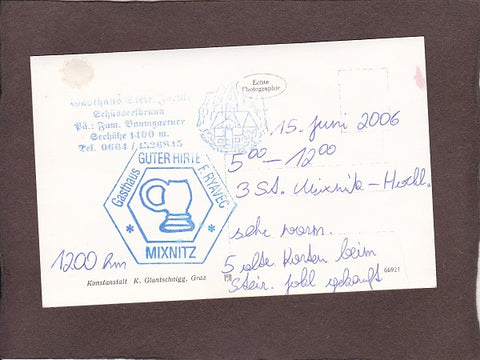 Echte
Photographie
Gasthaus Steir. Jockl
Schüsserlbrunn
Pä.: Fam. Baumgartner
Seehöhe 1400 m.
Tel. 0664 / 4526845
15. Juni 2006
5 00 – 12 00
3 St. Mixnitz – Hochl.
sehr warm.
5 alte Karten beim
Steir. Jokl gekauft
Gasthaus
GUTER HIRTE F. RYAVEC
* *
MIXNITZ
1200 hm
Konstanstalt K. Glantschnigg, Graz
66921